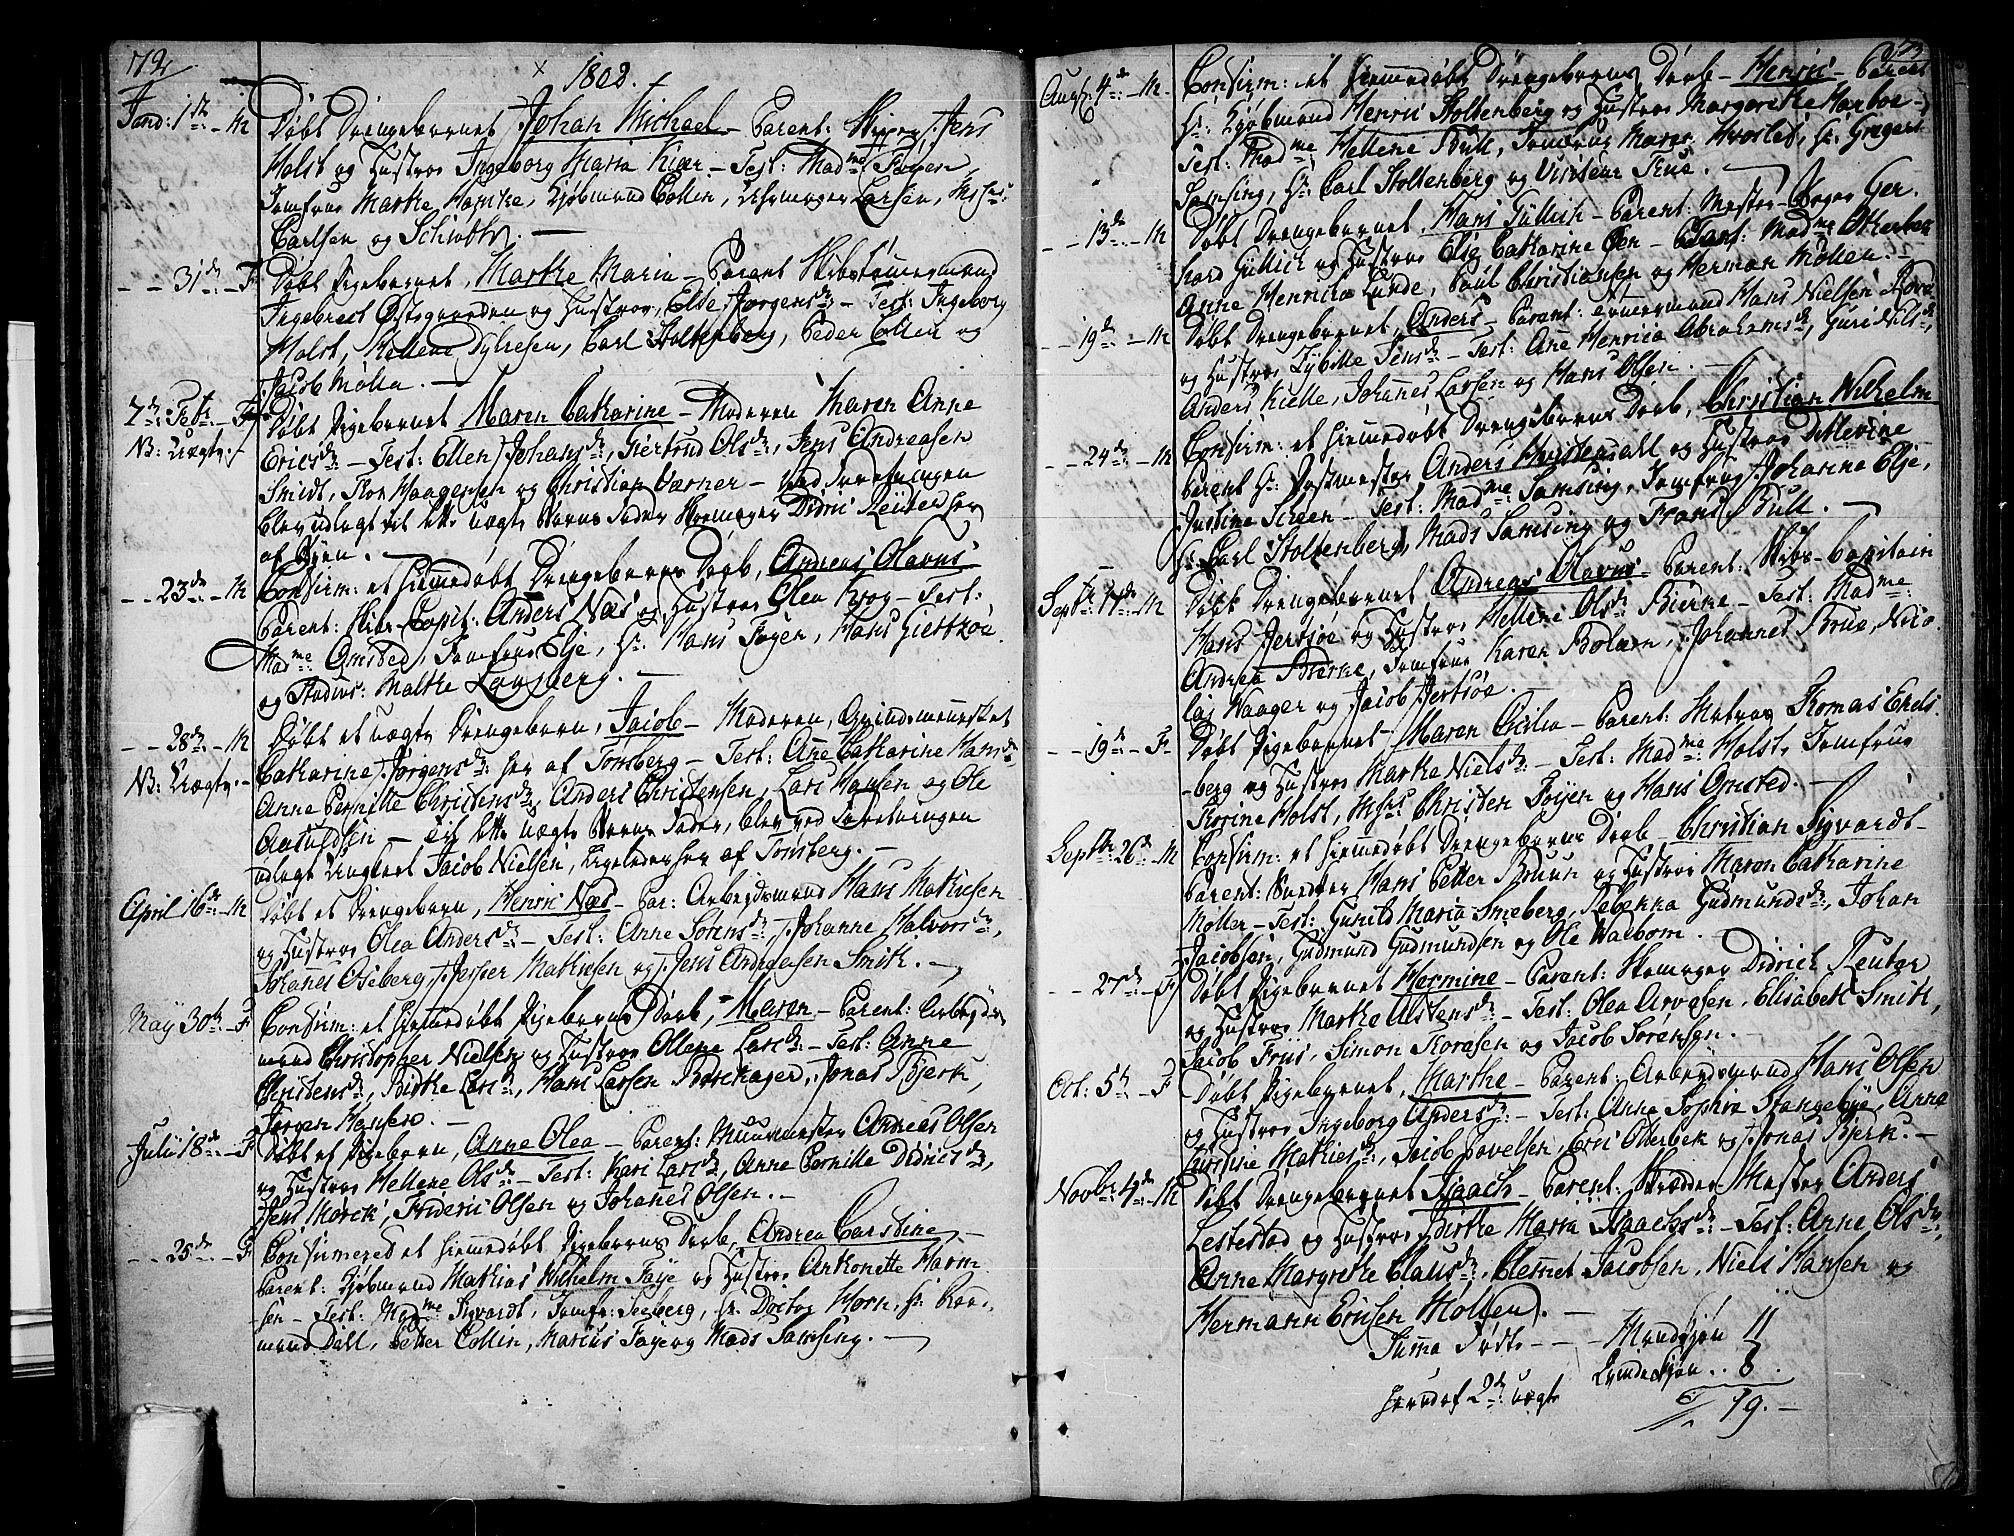 172
1808.
Janu: 1ste - M
Døbt Drengebarnet, Johan Michael - Parent: Skipper Jens
Holst og Hustroe Ingeborg Maria Kiær - Test: Madme Føyen
Jomfrue Marthe Hancke, Kjøbmand Collin, Uhrmager Larsen, Mrs:
Carlsen og Schiøtt. -
- - 31de - F
Døbt Pigebarnet, Marthe Maria - Parent Skibstømermand
Ingebret Østegaarden og Hustroe, Else Jørgensdr - Test: Ingeborg
Holst, Hellene Sylvesen, Carl Stoltenberg, Peder Collin og
Jacob Møller. -
7de Febr. - F
NB: Uægte.
Døbt Pigebarnet Maren Catharine - Moderen Maren Anne
Ericsdr - Test: Ellen Johansdr, Giertrud Olsdr, Jens Andreasen
Smidt, Thor Haagensen og Christian Værner - Ved Forretningen
blev udlagt til dette uægte Barns Fader Skomager Didric Reuter her
af Byen. -
- - 23de - M
Confirm: et hiemmedøbt Drengebarns Daab, Andreas Olavus
Parent: Skibs Capit: Anders Næs og Hustroe Olea Krog - Test:
Madme Omsted, Jomfrue Elje, Hr: Hans Føyen, Hans Giertzøe
og Studios: Malthe Langberg. -
- - 28de - M
NB: Uægte. -
Døbt et uægte Drengebarn, Jacob - Moderen, Qvindemennesket
Catharine Jørgensdr her af Tønsberg - Test: Ane Catharine Hansdr
Anne Pernille Christensdr, Anders Christensen, Lars Hansen og Ole
Aasuldsen - Til dette uægte Barns Fader, blev ved Forretningen
udlagt Ungkarl Jacob Nielsen, ligeledes her af Tønsberg. -
April 16de - M
Døbt et Drengebarn, Henric Næs - Par: Arbejdsmand Hans Mathiesen
og Hustroe Olea Andersdr - Test: Anne Sørensdr, Johanne Halvorsdr,
Johanes Oseberg, Jesper Mathiesen og Jens Andreasen Smith. -
May 30te - F
Confirm: et hiemmedøbt Pigebarns Daab, Maren - Parent: Arbeyds-
mand Christopher Nielsen og Hustroe Ollene Larsdr - Test: Anne
Christensdr, Birthe Larsdr, Hans Larsen Børchager, Jonas Bjerk,
Jørgen Hansen. -
Julii 18de - F
Døbt et Pigebarn, Anne Olea - Parent: Muurmester Andreas Olsen
og Hustroe Hellene Olsdr - Test: Kari Larsdr, Anne Pernille Didricsdr,
Jens Morck, Frideric Olsen og Johanes Olsen. -
- - 25de - F
Confirmered et hiemmedøbt Pigebarns Daab, Andrea Carstine -
Parent: Kjøbmand Mathias Wilhelm Faye og Hustroe Anthonette Harm-
sen - Test: Madme Sigvardt, Jomfr: Seeberg, Hr: Doctor Horn, Hr: Koe-
mand Dall, Petter Collin, Marcus Faye og Mads Samsing. -
173
Aug: 4de - M.
Confirm: et hiemmedøbt Drengebarns Daab - Henric - Parent
Hr: Kjøbmand Henric Stoltenberg og Hustroe Margarethe Harboe -
Test: Madme Hellene Bull, Jomfrue Maren Hvoslef, Hr: Gregers
Samsing, Hr: Carl Stoltenberg og Visiteur True. -
- - 13de - M
Døbt Drengebarnet, Hans Güllich - Parent: Mester-Bager Ger-
hard Güllich og Hustroe Elsg Catharine - Test: Madme Otterbek
Anne Henrica Lunde, Paul Christiansen og Herman Møller. -
- - 19de - M
Døbt Drengebarnet, Anders - Parent: Tømermand Hans Nielsen
og Hustroe Sybille Jensdr - Test: Ane Henrica Abrahamsdr, Guri Nilsdr,
Anders Kielle, Johannes Larsen og Hans Olsen. -
- - 24de - M
Confirm: et hiemmedøbt Drengebarns Daab, Christian Wilhelm
Parent Hr: Postmester Anders og Hustroe Ditlevine
Justine Sireen - Test: Madme Samsing, Jomfrue Johanna Elje,
Hr: Carl Stoltenberg, Mads Samsing og Frans Bull. -
Septr 14de - M
Døbt Drengebarnet Andreas Olavus - Parent: Skibs-Capitain
Hans Jertsøe og Hustroe Hellene Olsdr Bierne - Test: Madme
Andrea Bierne, Jomfrue Karen Bolærn, Johannes Brue, Nico-
laj Waager og Jacob Jertsøe.
- - 19de - F.
Døbt Pigebarnet, Maren Cicilia - Parent: Matros Thomas Engels-
berg og Hustroe Marthe Nielsdr - Test: Madme Holst, Jomfrue
Thorine Holst, Mrs: Christen Føyen og Hans Omsted. -
Septbr 26de M
Confirm: et hiemmedøbt Drengebarns Daab - Christian Sigvardt -
Parent: Snedker Hans Petter Bruun og Hustroe Maren Catharine
Møller - Test: Gunild Maria Smeberg, Rebekka Gudmundsdr, Johan
Jacobsen, Gudmund Gudmundsen og Ole Walbom. -
- - 27de - F
Døbt Pigebarnet Hermine - Parent: Skomager Didrich Reuter
og Hustroe Marthe Alstensdr - Test: Olea Arvesen, Elisabeth Smith,
Jacob Friis, Simon Thoresen og Jacob Sørensen. -
Oct: 5te - F
Døbt Pigebarnet, Marthe - Parent: Arbeydsmand Hans Olsen
og Hustroe Ingeborg Andersdr - Test: Anne Sophia Stangebye, Anna
Cirstine Mathiesdr, Jacob Povelsen, Eric Otterbek og Jonas Bjerk. -
Novbr 4de - M
Døbt Drengebarnet Isaach - Parent: Skrædder Mester Anders
Lestestad og Hustroe Birthe Maria Isaachsdr - Test: Anne Olsdr,
Anne Margrethe Clausdr, Clemet Jacobsen, Niels Hansen og
Hermann Ericsen Møller. -
Suma Fødte - - Mandkjøn 11
Qvindekjøn .. 8.
herudaf 2de uægte
19. -